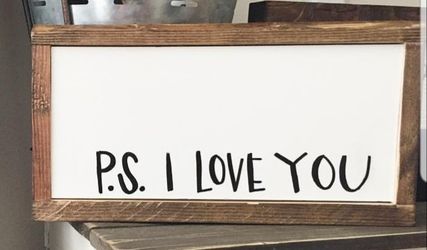 P.S. I LOVE YOU